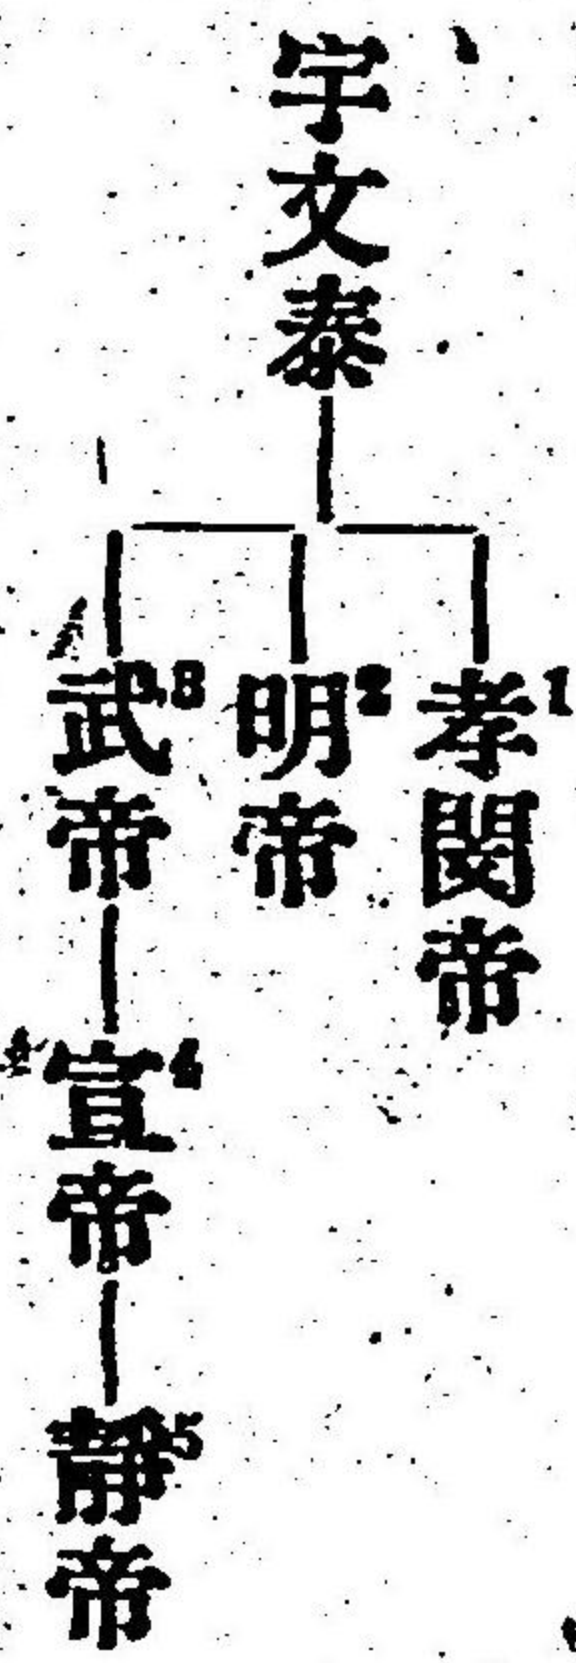 宇文泰
孝閔帝1
明帝2
武帝3
宣帝4
靜帝5